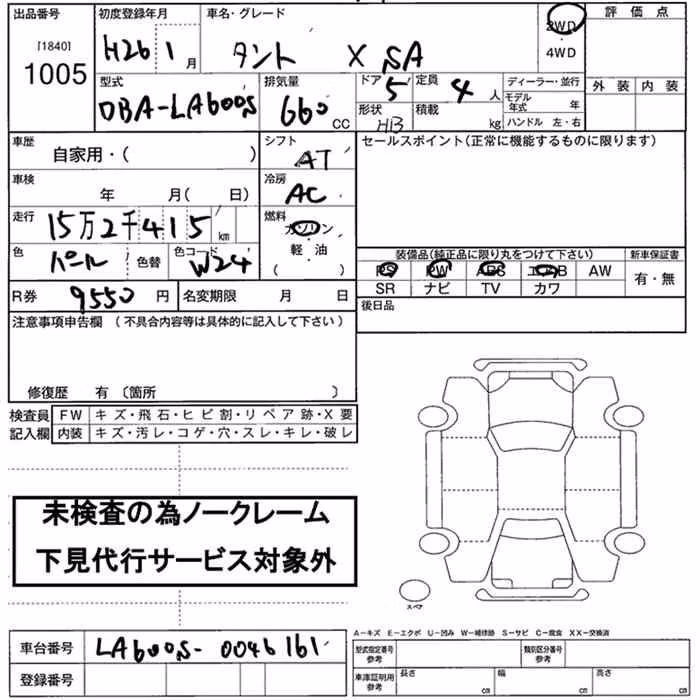 出品番号 初度登録年月 車名・グレード 評価点
[1840] 1005 H26 1月 タント X SA 2WD・4WD
外装 内装
型式 排気量 ドア 5 定員 4人 ディーラー・並行
DBA-LA600S 660CC 形状 HB 積載 kg モデル年式 年
ハンドル 左・右
車歴 シフト セールスポイント(正常に機能するものに限ります)
自家用・( ) AT
車検 冷房
年 月( 日) AC
走行 15万2千415km 燃料 ガソリン・軽油
( )
色 パール 色替 色コード W24
装備品(純正品に限り丸をつけて下さい) 新車保証書
PS PW ABS エアB AW 有・無
SR ナビ TV カワ
R券 9550円 名変期限 月 日
後日品
注意事項申告欄 (不具合内容等は具体的に記入して下さい)
修復歴 有 〔箇所 〕
検査員 FW キズ・飛石・ヒビ割・リペア跡・X要
記入欄 内装 キズ・汚レ・コゲ・穴・スレ・キレ・破レ
未検査の為ノークレーム
下見代行サービス対象外
スペア
A-キズ E-エクボ U-凹み W-補修跡 S-サビ C-腐食 XX-交換済
車台番号 LA600S-0046161
登録番号
型式指定番号 参考 類別区分番号 参考
車庫証明用 参考 長さ cm 幅 cm 高さ cm